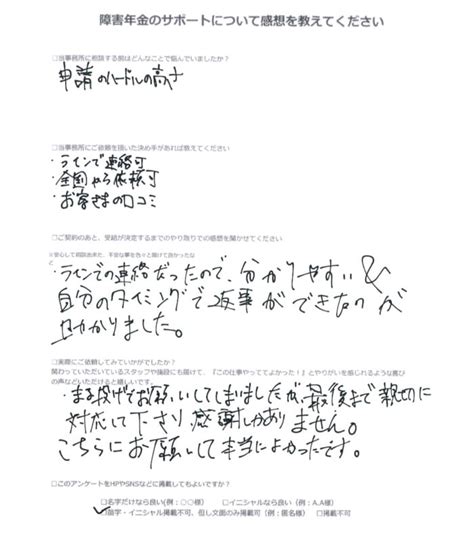 障害年金のサポートについて感想を教えてください
□当事務所に相談する前はどんなことで悩んでいましたか?
申請のハードルの高さ
□当事務所にご依頼を頂いた決め手があれば教えてください
・ラインで連絡可
・全国から依頼可
・お客さまの口コミ
□ご契約のあと、受給が決定するまでのやり取りでの感想を聞かせてください
※安心して相談出来た、不安な事を色々と聞けて良かったなど
・ラインでの連絡だったので、分かりやすい&
自分のタイミングで返事ができたのが
助かりました。
□実際にご依頼してみていかがでしたか?
関わっていただいているスタッフや施設にも届けて、『この仕事やっててよかった!』とやりがいを感じれるような喜び
の声などいただけると嬉しいです。
・まる投げでお願いしてしまいましたが、最後まで親切に
対応して下さり感謝しかありません。
こちらにお願いして本当によかったです。
□このアンケートをHPやSNSなどに掲載してもよいですか?
□名字だけなら良い(例:○○様) □イニシャルなら良い(例:A.A様)
□苗字・イニシャル掲載不可、但し文面のみ掲載可(例:匿名様) □掲載不可